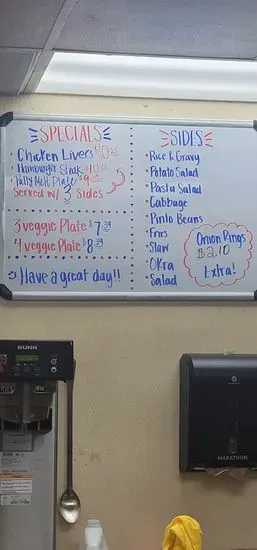 SPECIALS
Chicken Livers $10.25
Hamburger Steak $10
Patty Melt Plate $9
Served w/ 3 Sides
3 veggie Plate $7.39
4 veggie Plate $8.39
Have a great day!!
SIDES
Rice & Gravy
Potato Salad
Pasta Salad
Cabbage
Pinto Beans
Fries
Slaw
Okra
Salad
Onion Rings
$2.10
Extra!
BUNN
MARATHON